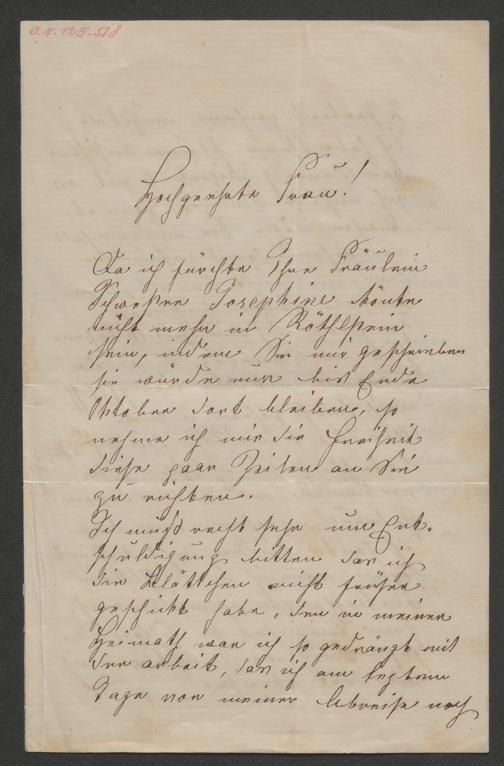 J.N. 125.518
Hochgeehrte Frau!
Da ich fürchte Ihre Fräulein
Schwester Josephine könnte
nicht mehr in Röthlstein
sein, indem Sie mir geschrieben
sie würde nur bis Ende
Oktober dort bleiben, so
nehme ich mir die Freiheit
diese paar Zeilen an Sie
zu richten.
Ich muß recht sehr um Ent-
schuldigung bitten das ich
die Blättchen nicht früher
geschickt habe, den in meiner
Heimath war ich so gedrängt mit
der arbeit, das ich am letzten
Tage vor meiner Abreise noch